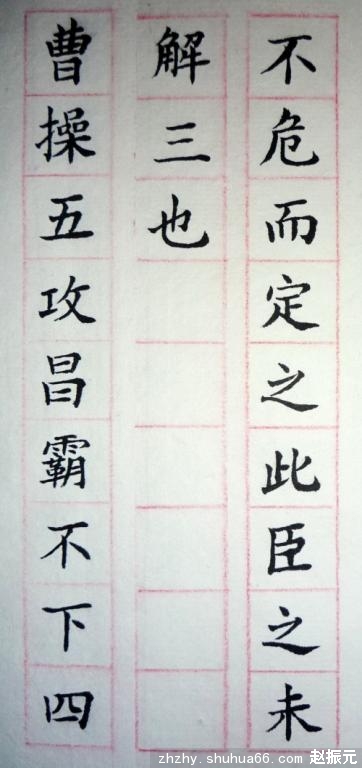 不危而定之此臣之未
解三也
曹操五攻昌霸不下四
zhzhy.shuhua66.com 赵振元